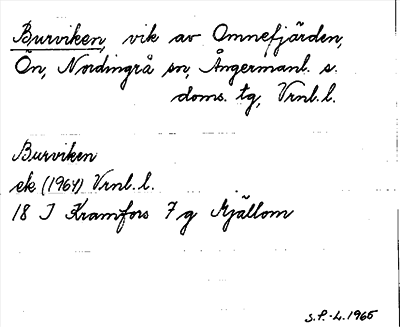 Burviken, vik av Omnefjärden,
Ön, Nordingrå sn, Ångermanl. s.
doms. tg, Vrnl. l.
Burviken
ek (1964) Vrnl. l.
18 J Kramfors 7 g Mjällom
S.P. -4.1965